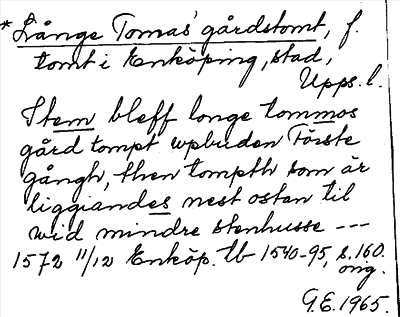 *Långe Tomas' gårdstomt, f.
tomt i Enköping, stad,
Upps. l.
Item bleff longe tommos
gård tompt upbuden Förste
gångh, then tompth som är
liggiandes nest ostan til
wid mindre stenhusse ---
1572 11/12 Enköp. tb 1540-95, s. 160.
orig.
G.E. 1965.